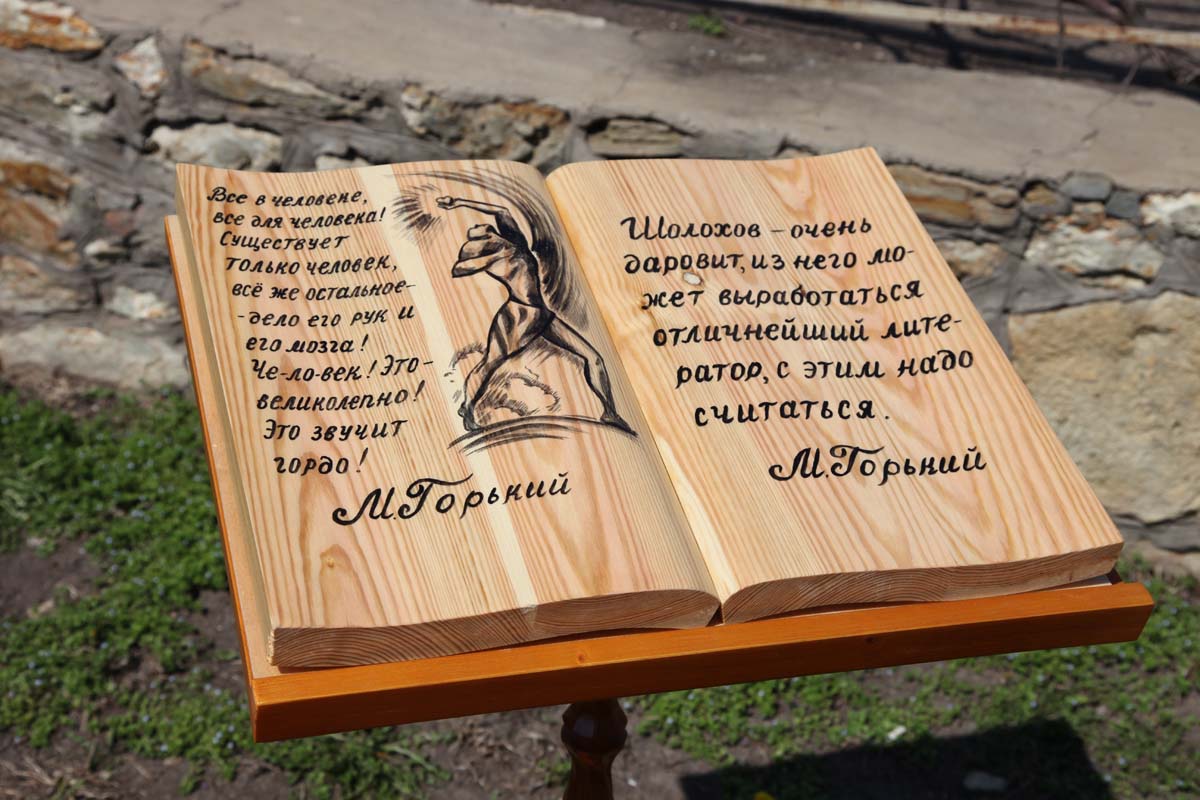 Все в человеке,
все для человека!
Существует
только человек,
всё же остальное-
-дело его рук и
его мозга!
Че-ло-век! Это-
великолепно!
Это звучит
гордо!
М.Горький
Шолохов – очень
даровит, из него мо-
жет выработаться
отличнейший лите-
ратор, с этим надо
считаться.
М.Горький